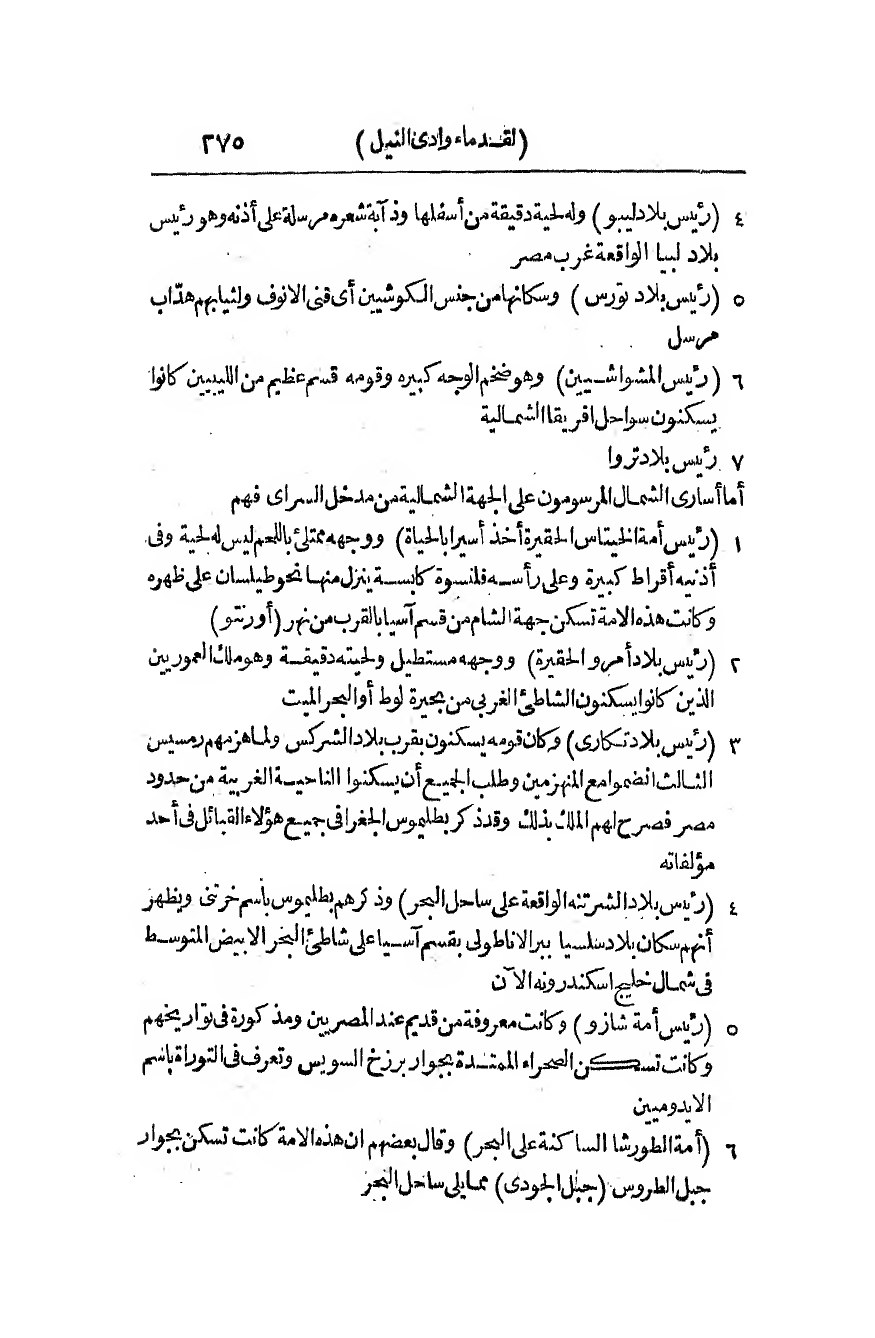 (لقدماء وادى النيل) ٢٧٥
٤ (رئيس بلاد ليبو) وله لحية دقيقة من أسفلها وذآبة شعره مرسلة على أذنه وهو رئيس
بلاد لبيا الواقعة غرب مصر
٥ (رئيس بلاد تورس) وسكانها من جنس الكوشيين أى قنى الانوف ولثيابهم هدّاب
مرسل
٦ (رئيس المشواشيين) وهو ضخم الوجه كبيره وقومه قسم عظيم من الليبيين كانوا
يسكنون سواحل افريقا الشمالية
٧ رئيس بلاد تروا
أما أسارى الشمال المرسومون على الجهة الشمالية من مدخل السراى فهم
١ (رئيس أمة الخيتاس الحقيرة أخذ أسيرا بالحياة) ووجهه ممتلئ باللحم ليس له لحية وفى
أذنيه أقراط كبيرة وعلى رأسه قلنسوة كابسة ينزل منها نحو طيلسان على ظهره
وكانت هذه الامة تسكن جهة الشام من قسم آسيا بالقرب من نهر (أورنتو)
٢ (رئيس بلاد أمرو الحقيرة) ووجهه مستطيل ولحيته دقيقة وهو ملك العموريين
الذين كانوا يسكنون الشاطئ الغربى من بحيرة لوط أو البحر الميت
٣ (رئيس بلاد تكارى) وكان قومه يسكنون بقرب بلاد الشركس ولما هزمهم رمسيس
الثالث انضموا مع المنهزمين وطلب الجميع أن يسكنوا الناحية الغربية من حدود
مصر فصرح لهم الملك بذلك وقد ذكر بطليموس الجغرافى جميع هؤلاء القبائل فى أحد
مؤلفاته
٤ (رئيس بلاد الشرتنه الواقعة على ساحل البحر) وذكرهم بطليموس بأسم خرتنى ويظهر
أنهم سكان بلاد سلسيا ببر الاناطولى بقسم آسيا على شاطئ البحر الابيض المتوسط
فى شمال خليج اسكندرونه الآن
٥ (رئيس أمة شازو) وكانت معروفة من قديم عند المصريين ومذكورة فى تواريخهم
وكانت تسكن الصحراء الممتدة بجوار برزخ السويس وتعرف فى التوراة باسم
الايدوميين
٦ (أمة الطورشا الساكنة على البحر) وقال بعضهم ان هذه الامة كانت تسكن بجوار
جبل الطروس (جبل الجودى) مما يلى ساحل البحر